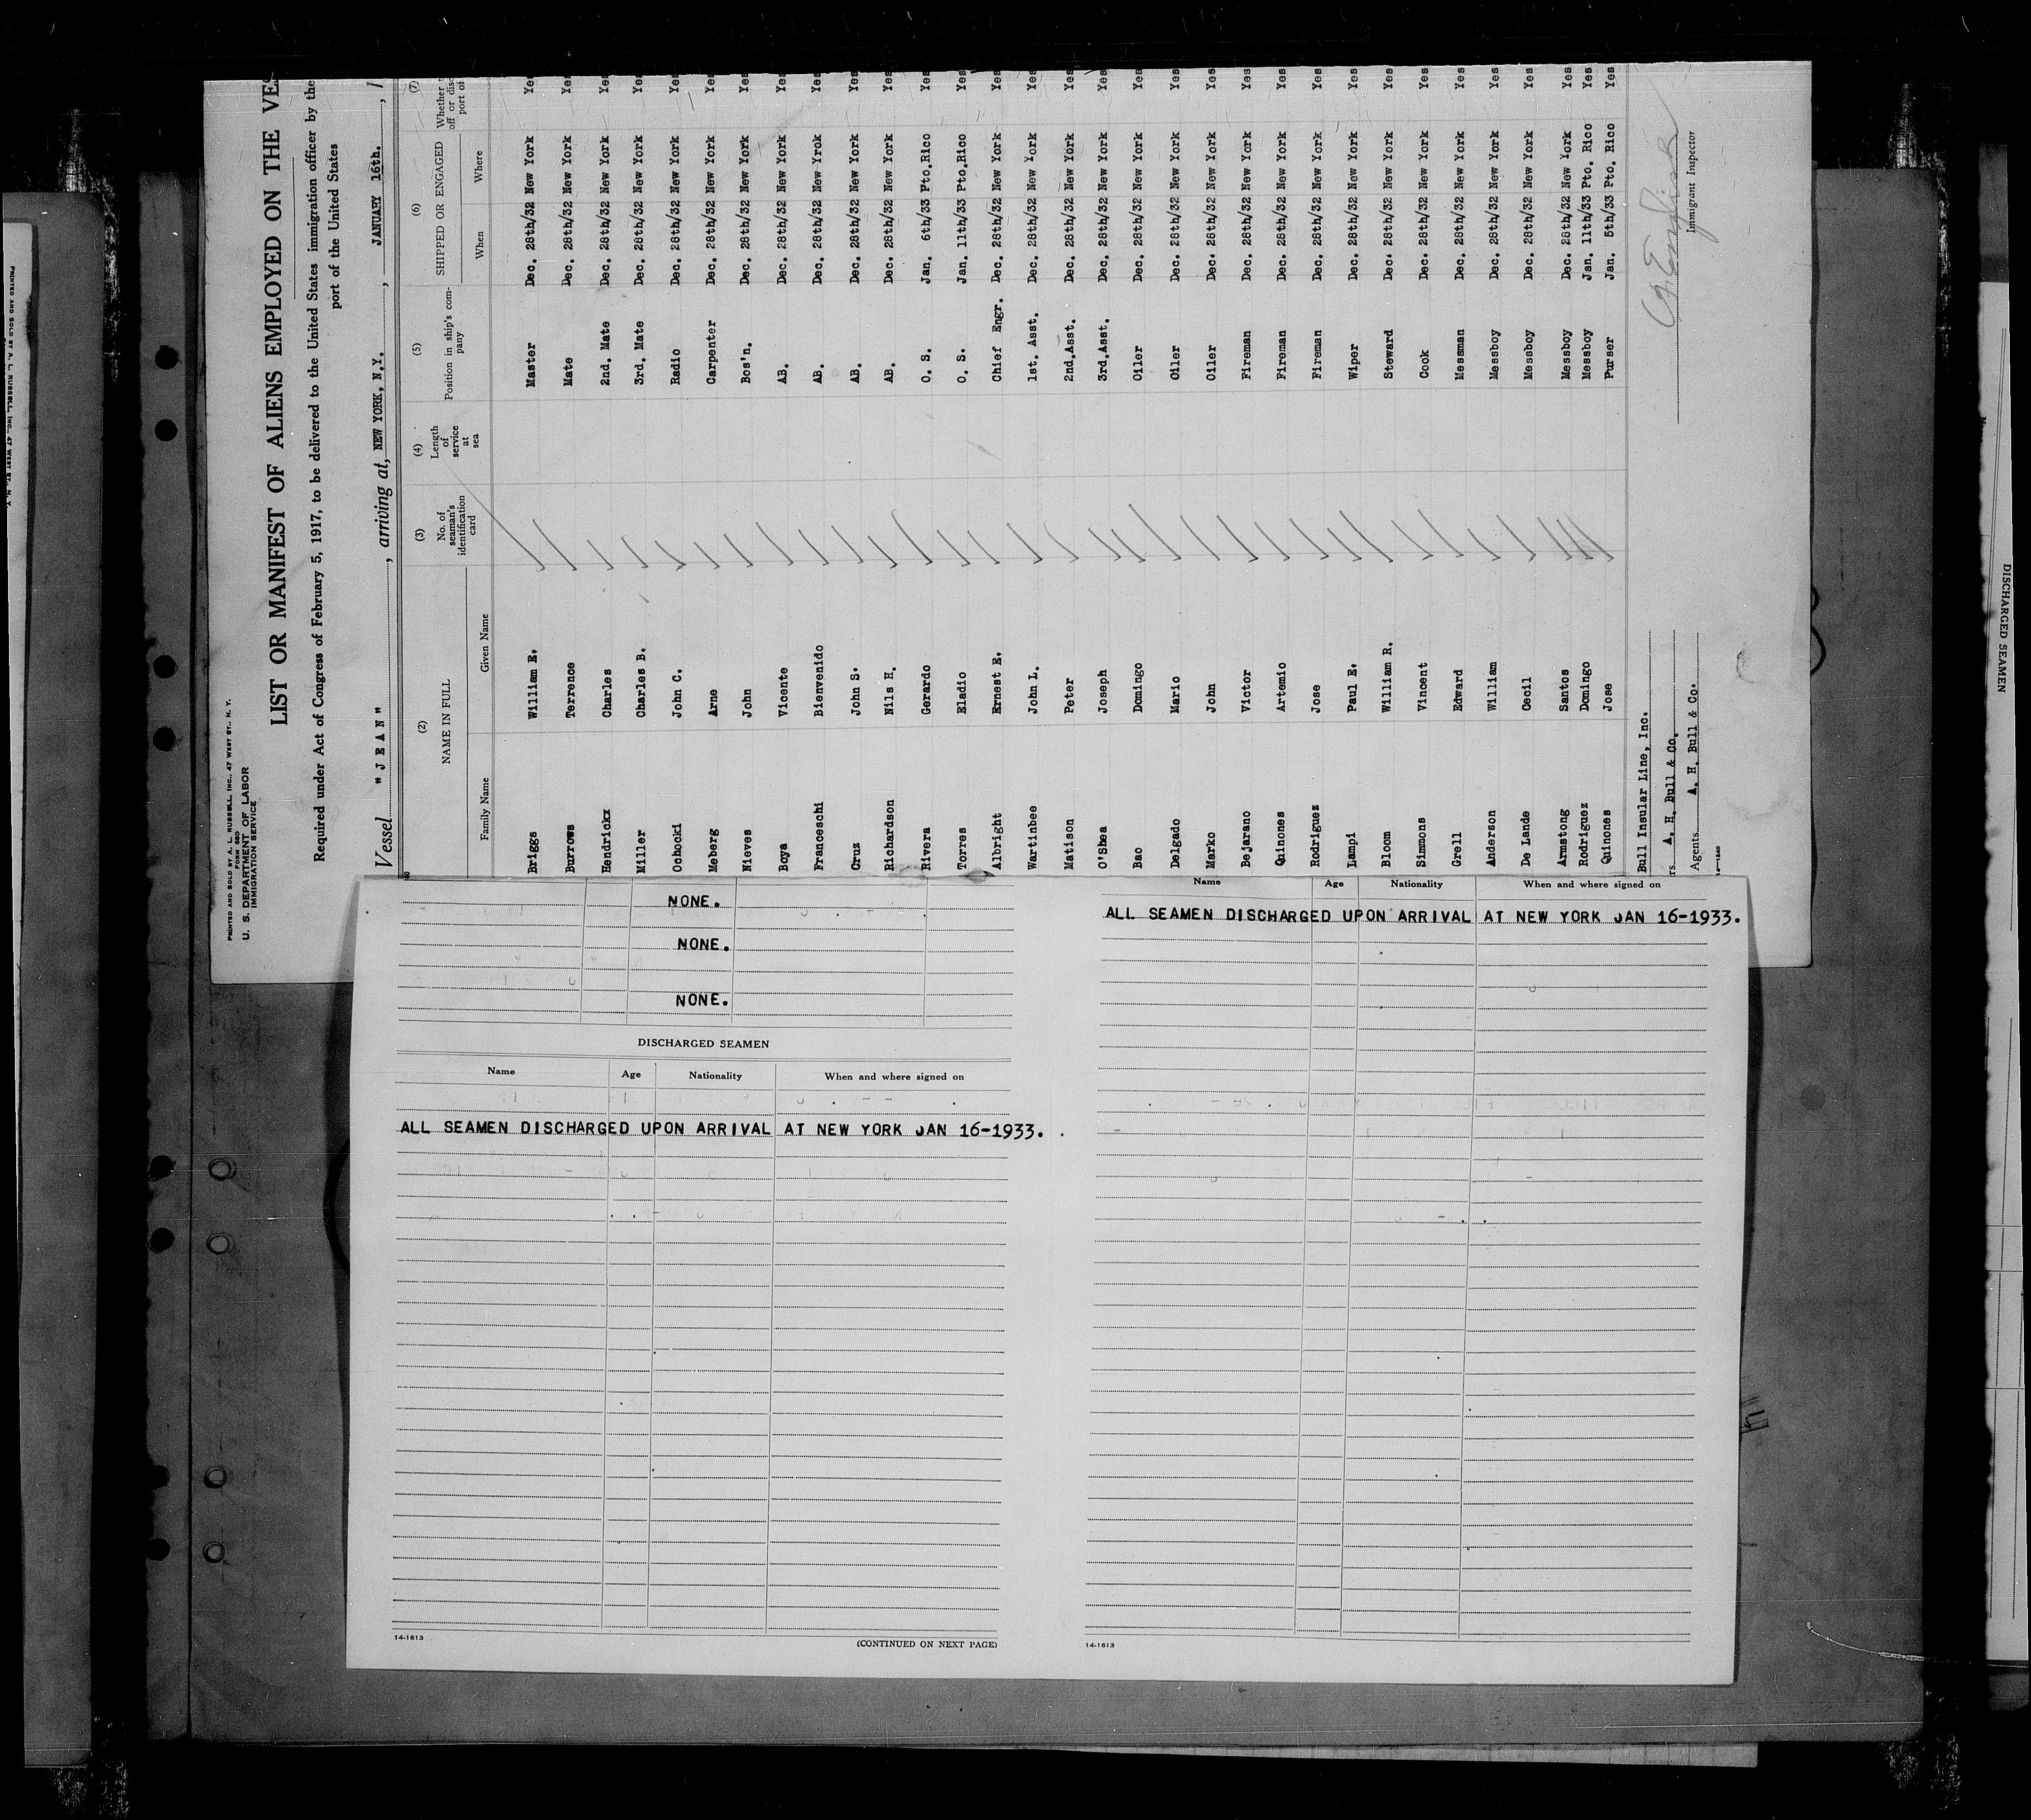 PRINTED AND SOLD BY A. L. RUSSELL, INC., 47 WEST ST., N. Y.
U. S. DEPARTMENT OF LABOR
FORM 680
IMMIGRATION SERVICE
LIST OR MANIFEST OF ALIENS EMPLOYED ON THE VES
Required under Act of Congress of February 5, 1917, to be delivered to the United States immigration officer by the
port of the United States
Vessel "JEAN", arriving at, NEW YORK, N.Y., JANUARY 16th., 1
(2) (3) (4) (5) (6) (7)
NAME IN FULL No. of seaman's identification card Length of service at sea Position in ship's company SHIPPED OR ENGAGED Whether
off or disc
port of
Family Name Given Name When Where
Briggs William E. Master Dec. 28th/32 New York Yes
Burrows Terrence Mate Dec. 28th/32 New York Yes
Hendrickx Charles 2nd. Mate Dec. 28th/32 New York Yes
Miller Charles B. 3rd. Mate Dec. 28th/32 New York Yes
Ochocki John C. Radio Dec. 28th/32 New York Yes
Meberg Arne Carpenter Dec. 28th/32 New York Yes
Nieves John Bos'n. Dec. 28th/32 New York Yes
Boya Vicente AB. Dec. 28th/32 New York Yes
Franceschi Bienvenido AB. Dec. 28th/32 New Yrok Yes
Cruz John S. AB. Dec. 28th/32 New York Yes
Richardson Nils H. AB. Dec. 28th/32 New York Yes
Rivera Gerardo O. S. Jan. 6th/33 Pto.Rico Yes
Torres Eladio O. S. Jan. 11th/33 Pto.Rico Yes
Albright Ernest E. Chief Engr. Dec. 28th/32 New York Yes
Wartinbee John L. 1st. Asst. Dec. 28th/32 New York Yes
Matison Peter 2nd.Asst. Dec. 28th/32 New York Yes
O'Shea Joseph 3rd.Asst. Dec. 28th/32 New York Yes
Bao Domingo Oiler Dec. 28th/32 New York Yes
Delgado Mario Oiler Dec. 28th/32 New York Yes
Marko John Oiler Dec. 28th/32 New York Yes
Bejarano Victor Fireman Dec. 28th/32 New York Yes
Quinones Artemio Fireman Dec. 28th/32 New York Yes
Rodriguez Jose Fireman Dec. 28th/32 New York Yes
Lampi Paul E. Wiper Dec. 28th/32 New York Yes
Bloom William R. Steward Dec. 28th/32 New York Yes
Simmons Vincent Cook Dec. 28th/32 New York Yes
Grell Edward Messman Dec. 28th/32 New York Yes
Anderson William Messboy Dec. 28th/32 New York Yes
De Lande Cecil Messboy Dec. 28th/32 New York Yes
Armstong Santos Messboy Dec. 28th/32 New York Yes
Rodriguez Domingo Messboy Jan. 11th/33 Pto. Rico Yes
Quinones Jose Purser Jan. 5th/33 Pto. Rico Yes
Bull Insular Line, Inc.
rs A. H. Bull & Co.
Agents A. H. Bull & Co.
Immigrant Inspector
NONE.
NONE.
NONE.
DISCHARGED SEAMEN
Name Age Nationality When and where signed on
ALL SEAMEN DISCHARGED UPON ARRIVAL AT NEW YORK JAN 16-1933.
14-1613
(CONTINUED ON NEXT PAGE)
Name Age Nationality When and where signed on
ALL SEAMEN DISCHARGED UPON ARRIVAL AT NEW YORK JAN 16-1933.
14-1613
PRINTED AND SOLD BY A. L. RUSSELL, INC., 47 WEST ST., N. Y.
DISCHARGED SEAMEN